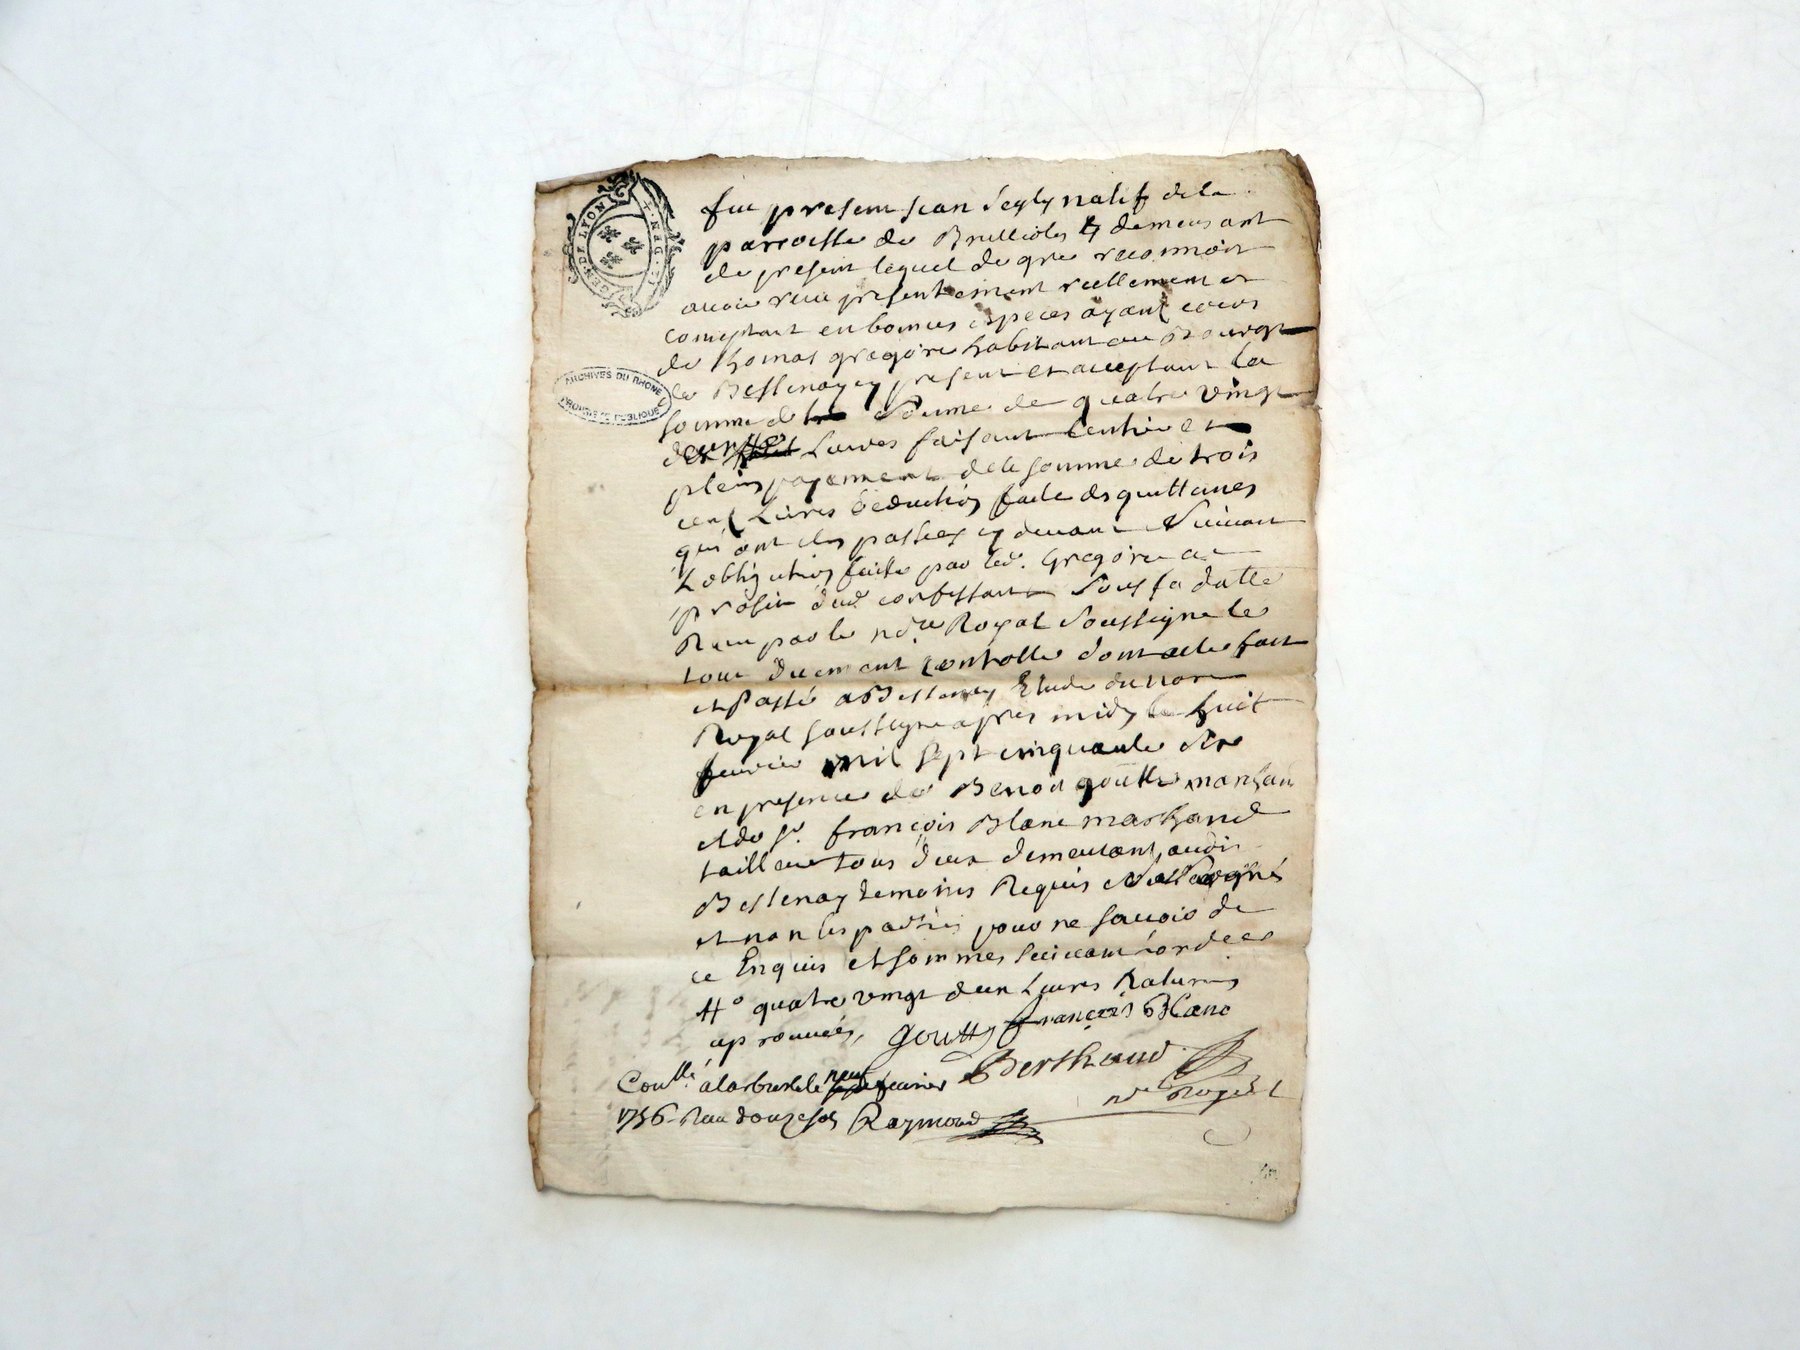 GEN. DE LYON
ARCHIVES DU RHONE
PROPRIETE PUBLIQUE
fut present jean natif de la
paroisse de Brullioles y demeurant
de present lequel de gre reconnoit
avoir recu presentement reellement et
comptant en bonnes especes ayant cours
de thomas gregoire habitant au Bourg
de Bessenay cy present et acceptant la
somme de somme de quatre vingt
deux Livres faisant lentier et
plein payement dela somme de trois
cent Livres deduction faite des quittances
qui ont etes passees cy devant Suivant
Lobligation faite par led. Gregoire au
profit dud. confessant Sous sa datte
Recu par le nore Royal Soussigne le
tout duement controlle dont acte fait
et Passé a Bessenay Etude du nore
Royal soussigne apres midy le huit
fevrier mil sept cinquante six
en presence de Benoit goutte marchant
et de sr. françois Blanc marchand
tailleur tous deux demeurant audit
Bessenay temoins Requis et
et non les parties pour ne savoir de
ce Enquis et sommes
quatre vingt deux Livres Ratures
aprouvées, Goutte françois Blanc
Berthaud
nre Royal
Contllé alarbresle le neuf fevrier
1756 Recu douze sols Raymond